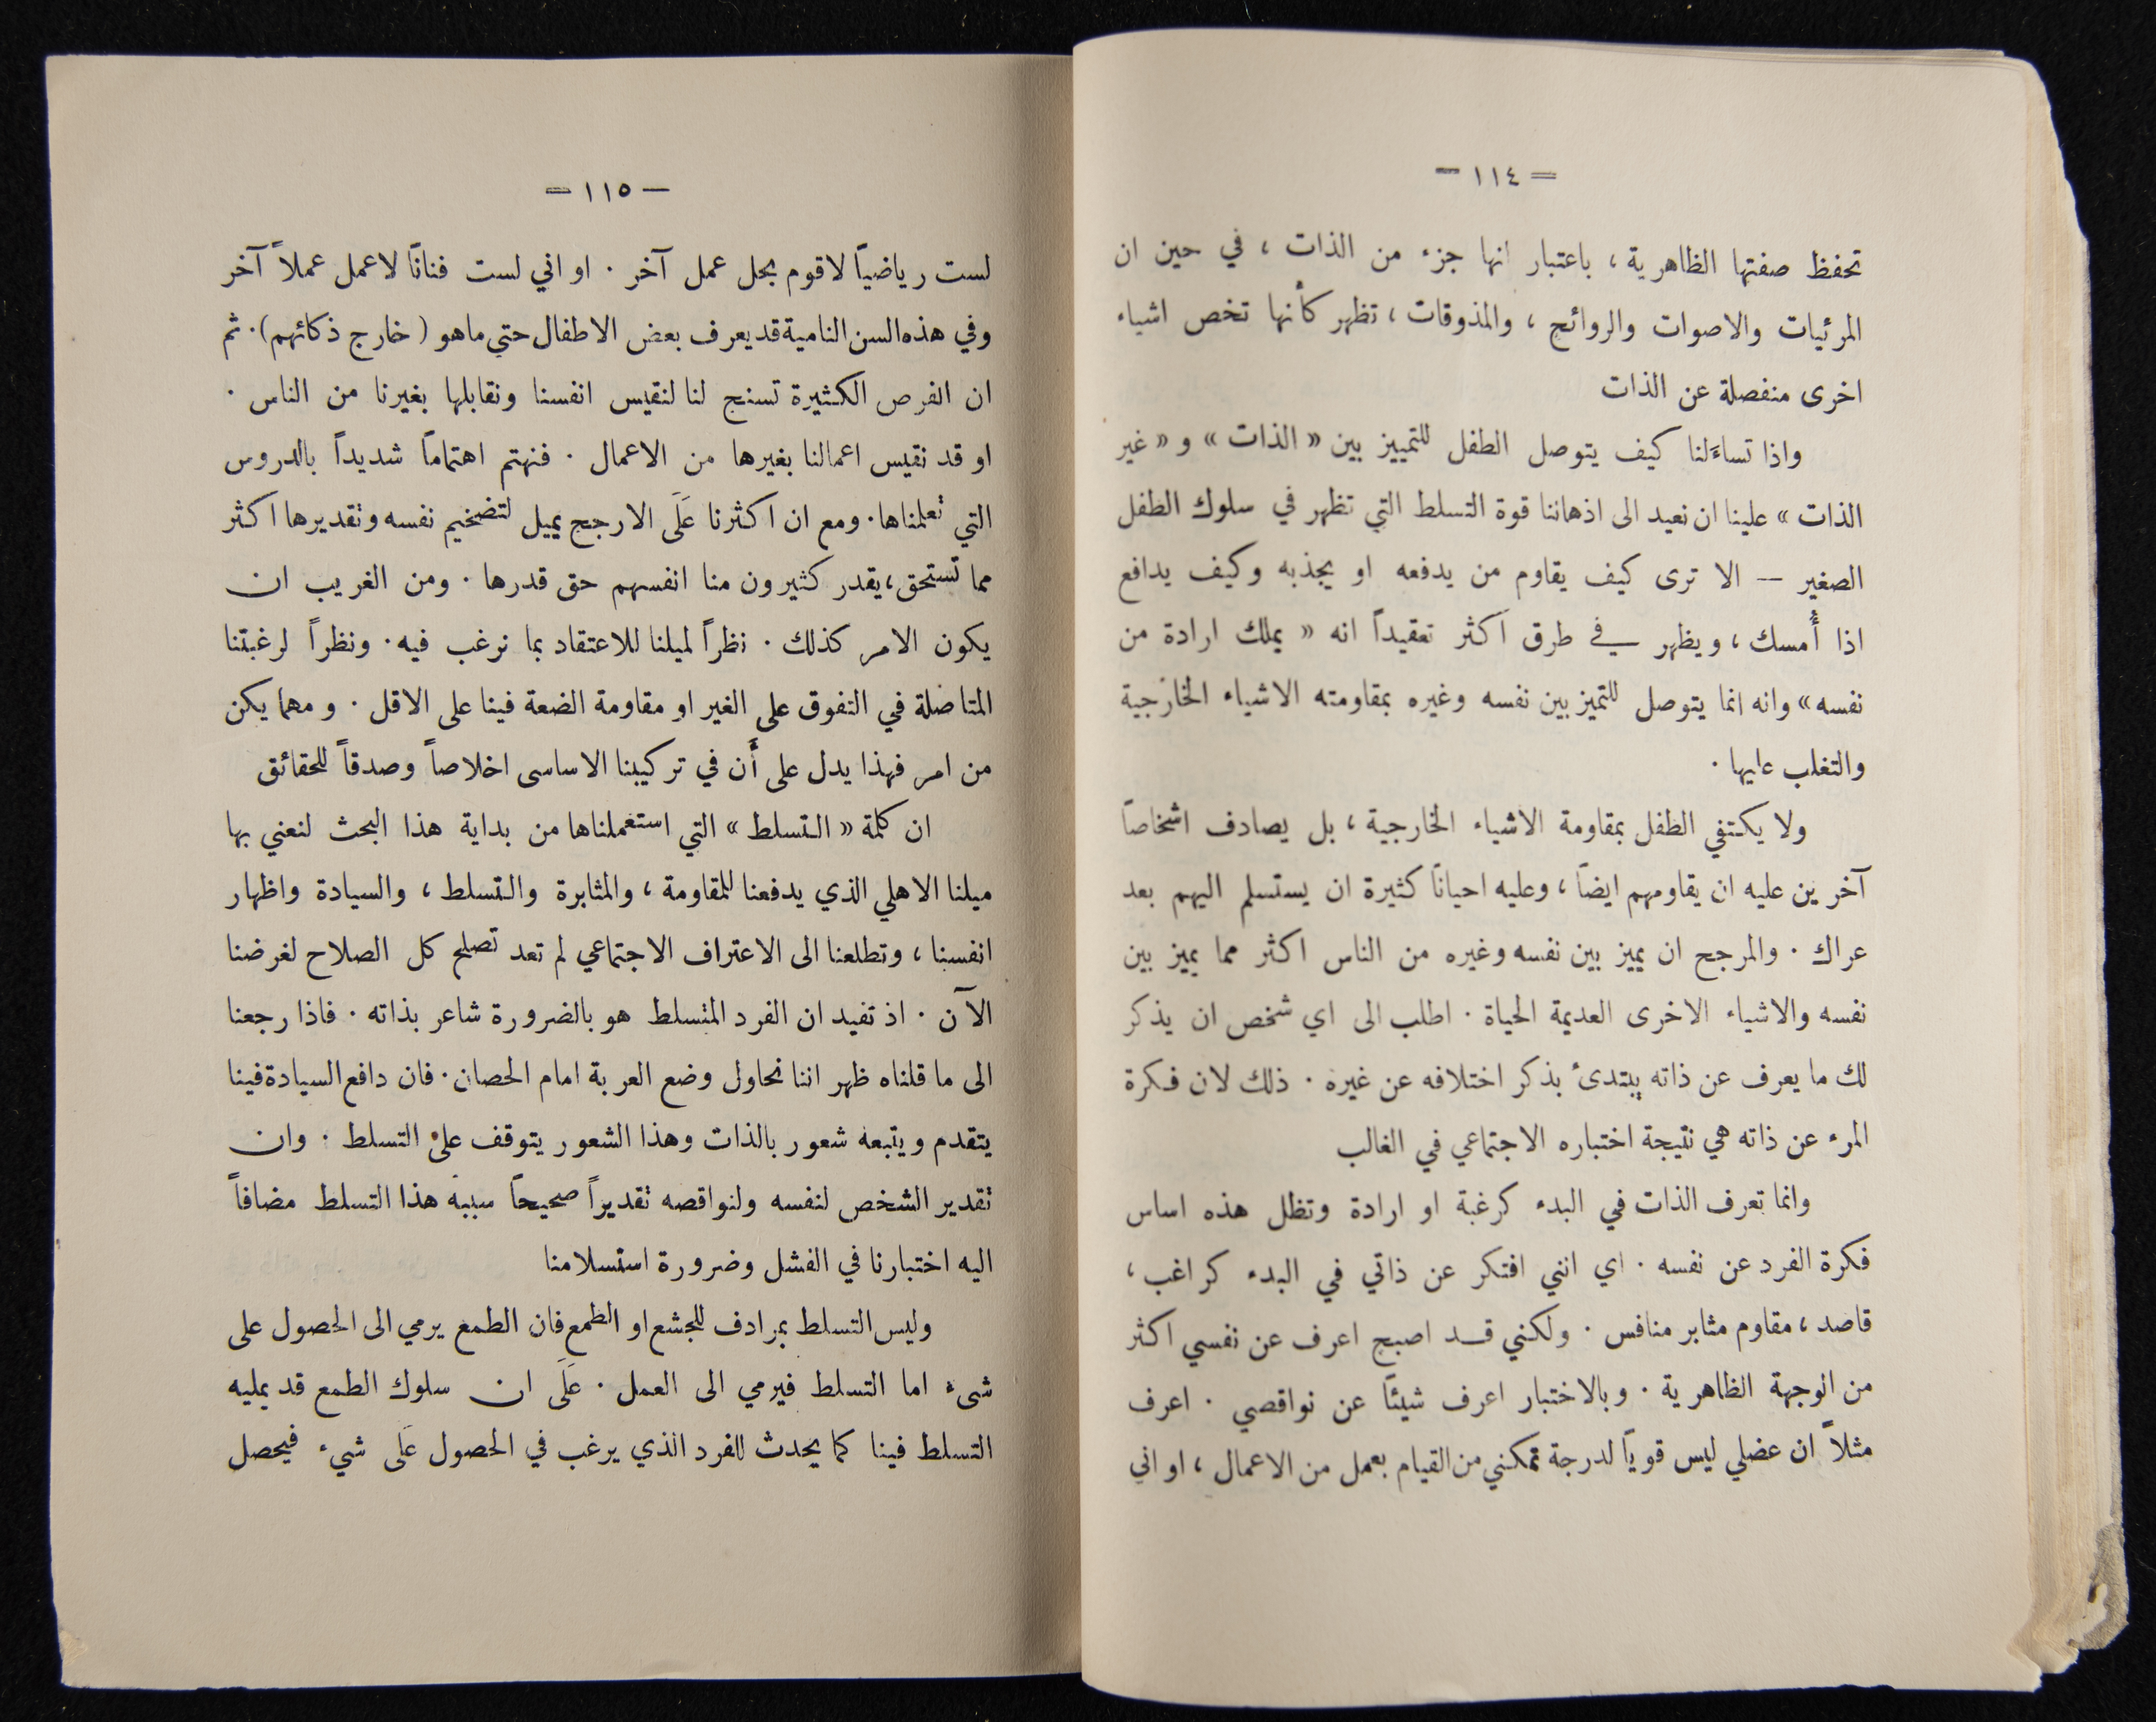 = ١١٤ –
تحفظ صفتها الظاهرية ، باعتبار انها جزء من الذات ، في حين ان
المرئيات والاصوات والروائح ، والمذوقات ، تظهر كأنها تخص اشياء
اخرى منفصلة عن الذات
واذا تساءَلنا كيف يتوصل الطفل للتمييز بين « الذات » و « غير
الذات » علينا ان نعيد الى اذهاننا قوة التسلط التي تظهر في سلوك الطفل
الصغير — الا ترى كيف يقاوم من يدفعه او يجذبه وكيف يدافع
اذا أُمسك ، ويظهر في طرق اكثر تعقيداً انه « يملك ارادة من
نفسه » وانه انما يتوصل للتميز بين نفسه وغيره بمقاومته الاشياء الخارجية
والتغلب عليها .
ولا يكتفي الطفل بمقاومة الاشياء الخارجية ، بل يصادف اشخاصاً
آخرين عليه ان يقاومهم ايضاً ، وعليه احياناً كثيرة ان يستسلم اليهم بعد
عراك . والمرجح ان يميز بين نفسه وغيره من الناس اكثر مما يميز بين
نفسه والاشياء الاخرى العديمة الحياة . اطلب الى اي شخص ان يذكر
لك ما يعرف عن ذاته يبتدئ بذكر اختلافه عن غيره . ذلك لان فكرة
المرء عن ذاته هي نتيجة اختباره الاجتماعي في الغالب
وانما تعرف الذات في البدء كرغبة او ارادة وتظل هذه اساس
فكرة الفرد عن نفسه . اي انني افتكر عن ذاتي في البدء كراغب ،
قاصد ، مقاوم مثابر منافس . ولكني قد اصبح اعرف عن نفسي اكثر
من الوجهة الظاهرية . وبالاختبار اعرف شيئاً عن نواقصي . اعرف
مثلاً ان عضلي ليس قوياً لدرجة تمكنني من القيام بعمل من الاعمال ، او اني
– ١١٥ =
لست رياضياً لاقوم بحل عمل آخر . او اني لست فناناً لاعمل عملاً آخر
وفي هذه السن النامية قد يعرف بعض الاطفال حتى ما هو ( خارج ذكائهم ) . ثم
ان الفرص الكثيرة تسنح لنا لنقيس انفسنا ونقابلها بغيرنا من الناس .
او قد نقيس اعمالنا بغيرها من الاعمال . فنهتم اهتماماً شديداً بالدروس
التي تعلمناها . ومع ان اكثرنا عَلَى الارجح يميل لتضخيم نفسه وتقديرها اكثر
مما تستحق ، يقدر كثيرون منا انفسهم حق قدرها . ومن الغريب ان
يكون الامر كذلك . نظراً لميلنا للاعتقاد بما نرغب فيه . ونظراً لرغبتنا
المتاصلة في التفوق على الغير او مقاومة الضعة فينا على الاقل . ومهما يكن
من امر فهذا يدل على أَن في تركيبنا الاساسى اخلاصاً وصدقاً للحقائق
ان كلمة « التسلط » التي استعملناها من بداية هذا البحث لنعني بها
ميلنا الاهلي الذي يدفعنا للمقاومة ، والمثابرة والتسلط ، والسيادة واظهار
انفسنا ، وتطلعنا الى الاعتراف الاجتماعي لم تعد تصلح كل الصلاح لغرضنا
الآن . اذ تفيد ان الفرد المتسلط هو بالضرورة شاعر بذاته . فاذا رجعنا
الى ما قلناه ظهر اننا نحاول وضع العربة امام الحصان . فان دافع السيادة فينا
يتقدم ويتبعه شعور بالذات وهذا الشعور يتوقف على التسلط . وان
تقدير الشخص لنفسه ولنواقصه تقديراً صحيحاً سببه هذا التسلط مضافاً
اليه اختبارنا في الفشل وضرورة استسلامنا
وليس التسلط بمرادف للجشع او الطمع فان الطمع يرمي الى الحصول على
شىء اما التسلط فيرمي الى العمل . عَلَى ان سلوك الطمع قد يمليه
التسلط فينا كما يحدث للفرد الذي يرغب في الحصول عَلى شيء فيحصل